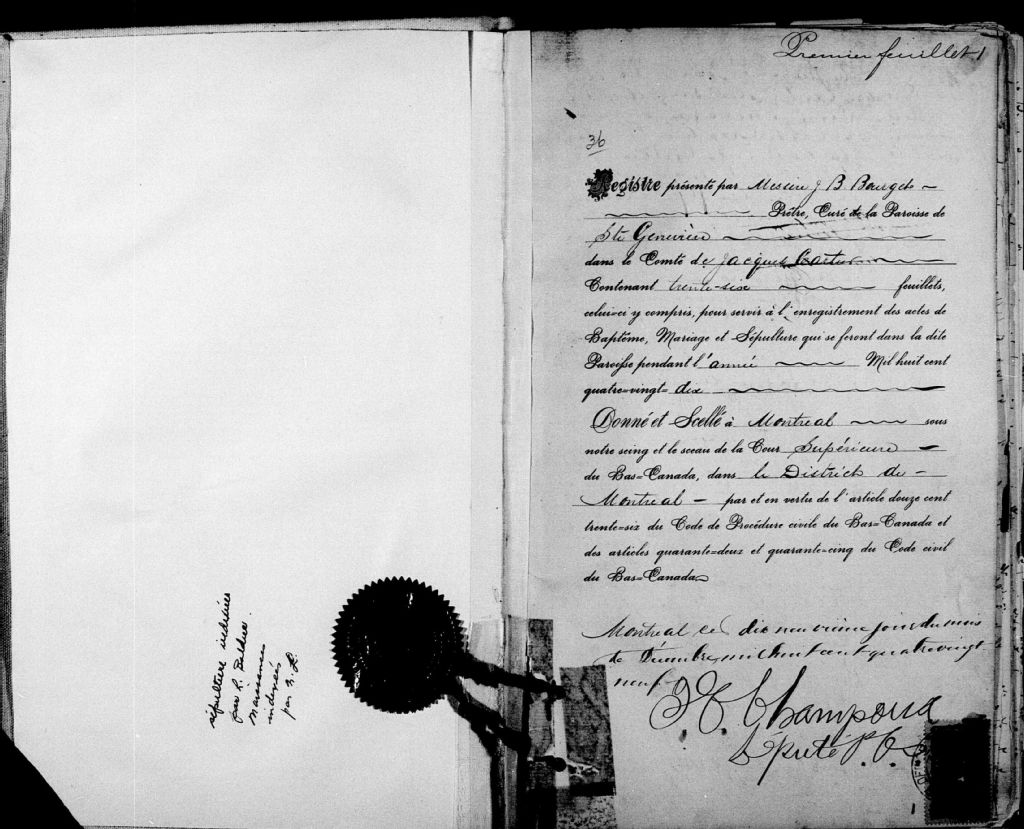 sépulture indexées
par R.
Naissances
indexés
par
Premier feuillet 1
36
Registre présenté par Messire J B Bourget
Prêtre, Curé de la Paroisse de
Ste Geneviève
dans le Comté de Jacques Cartier
Contenant trente-six feuillets,
celui=ci y compris, pour servir à l'enregistrement des actes de
Baptême, Mariage et Sépulture qui se feront dans la dite
Paroisse pendant l'année Mil huit cent
quatre=vingt= dix
Donné et Scellé à Montreal sous
notre seing et le sceau de la Cour Supérieure
du Bas=Canada, dans le District de
Montreal par et en vertu de l'article douze cent
trente=six du Code de Procédure civile du Bas=Canada et
des articles quarante=deux et quarante=cinq du Code civil
du Bas=Canada
Montreal ce dix neuvième jour du mois
de Décembre mil huit cent quatre vingt
neuf
Champoux
Député P. C. S